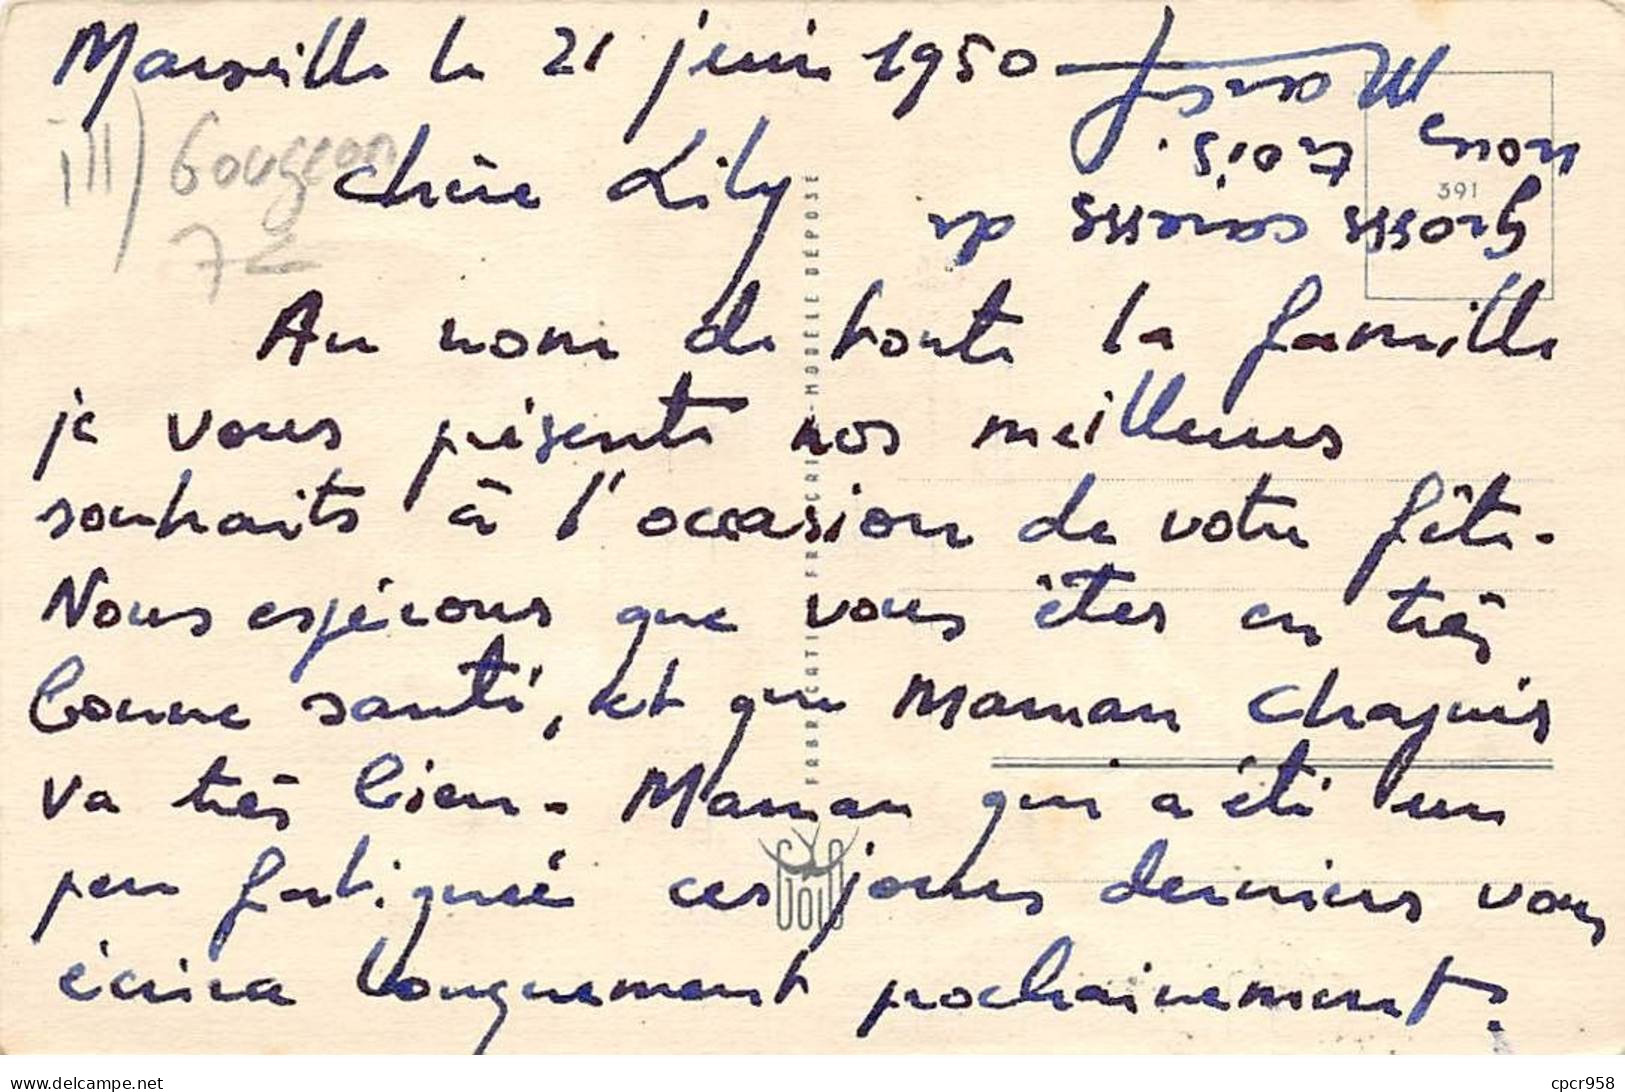 Marseille le 21 juin 1950
Chère Lily
Au nom de toute la famille
je vous présente nos meilleurs
souhaits à l'occasion de votre fête.
Nous espérons que vous êtes en très
bonne santé, et que Maman Chapuis
va très bien. Maman qui a été un
peu fatiguée ces jours derniers vous
écrira longuement prochainement.
Grosses caresses de
nous trois.
Marcel
ill) Gougeon
7€
391
FABRICATION FRANÇAISE - MODELE DEPOSE
cpcr958